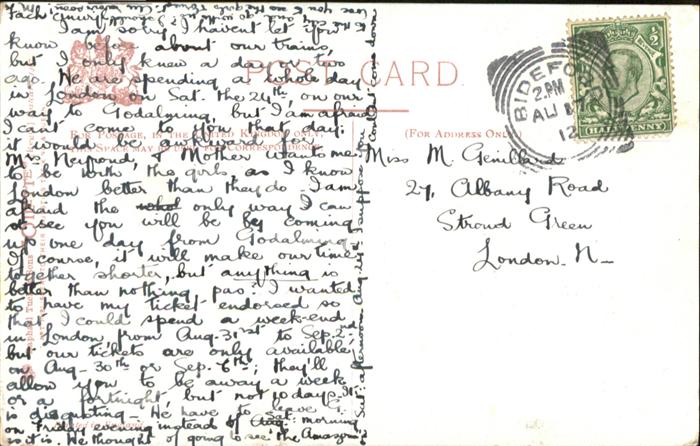 I am sorry I haven't let you
know before about our trains,
but I only knew a day or two
ago. We are spending a whole day
in London on Sat. the 24th, on our
way to Godalming, but I am afraid
I can't come to you that day:
it would be awkward.
Mrs & Mother wants me
to be with the girls, as I know
London better than they do. I am
afraid the only way I can
see you will be by coming
up one day from Godalming.
Of course, it will make our time
together shorter, but anything is
better than nothing pas? I wanted
to have my ticket endorsed so
that I could spend a week-end
in London, from Aug. 31st to Sep. 2nd
but our tickets are only available
on Aug. 30th or Sep. 6th; they'll
allow you to be away a week
or a fortnight, but not 10 days. It
is disgusting. We have to leave
on Friday evening instead of Sat. morning
as it is. We thought of going to see the
POST CARD
FOR POSTAGE IN THE UNITED KINGDOM ONLY,
(FOR ADDRESS ONLY)
BIDEFORD
2.PM
12
HALFPENNY
Miss M. Genillard
27, Albany Road
Stroud Green
London. N